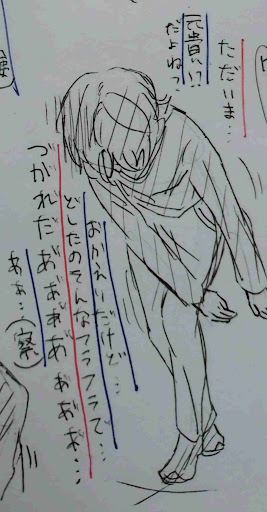 ただいま…
元貴い
だよねっ
おかえりだけど…
どしたのそんなフラフラで…
づがれだあ゛あ゛ぁぁあ゛ぁ゛ぁ゛ぁ゛…
あぁ…(察)